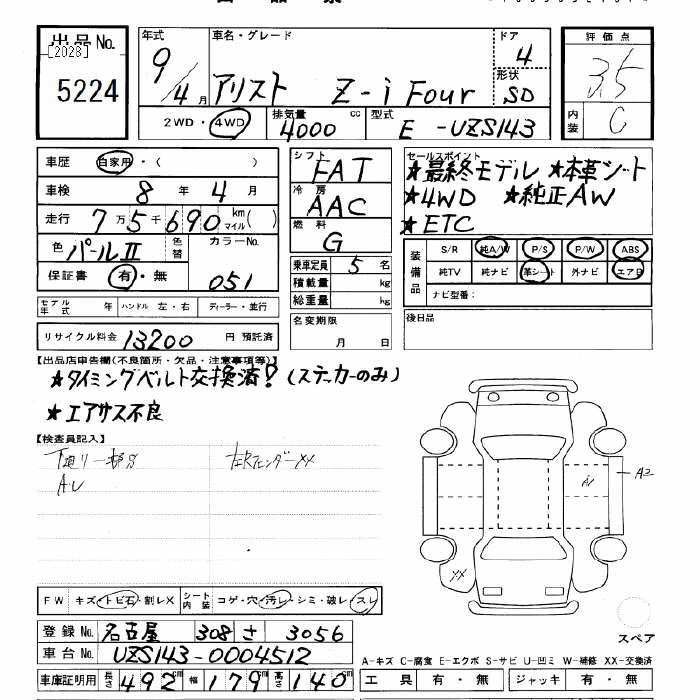 出品 No.
[2028]
5224
年式
9/4 月
車名・グレード
アリスト Z-i Four
ドア
4
形状
SD
評価点
3.5
内装
C
2WD・4WD
排気量
4000 cc
型式
E-UZS143
車歴 自家用・( )
車検 8 年 4 月
走行 7万5千690 km マイル( )
色 パールII
色替
カラーNo.
051
保証書 有・無
モデル年式 年 ハンドル 左・右 ディーラー・並行
リサイクル料金 13200 円 預託済
シフト
FAT
冷房
AAC
燃料
G
乗車定員 5 名
積載量 kg
総重量 kg
名変期限
月 日
セールスポイント
★最終モデル ★本革シート
★4WD ★純正AW
★ETC
装備品
S/R 純A/W P/S P/W ABS
純TV 純ナビ 革シート 外ナビ エアB
ナビ型番:
後日品
【出品店申告欄(不良箇所・欠品・注意事項等)】
★タイミングベルト交換済!(ステッカーのみ)
★エアサス不良
【検査員記入】
AU
A2
XX
FW キズ・トビ石・割レX シート内装 コゲ・穴・汚レ・シミ・破レ・スレ
登録 No. 名古屋 308 さ 3056
車台 No. UZS143-0004512
車庫証明用 長さ 492cm 幅 179cm 高さ 140cm
スペア
A-キズ C-腐食 E-エクボ S-サビ U-凹ミ W-補修 XX-交換済
工具 有・無 ジャッキ 有・無